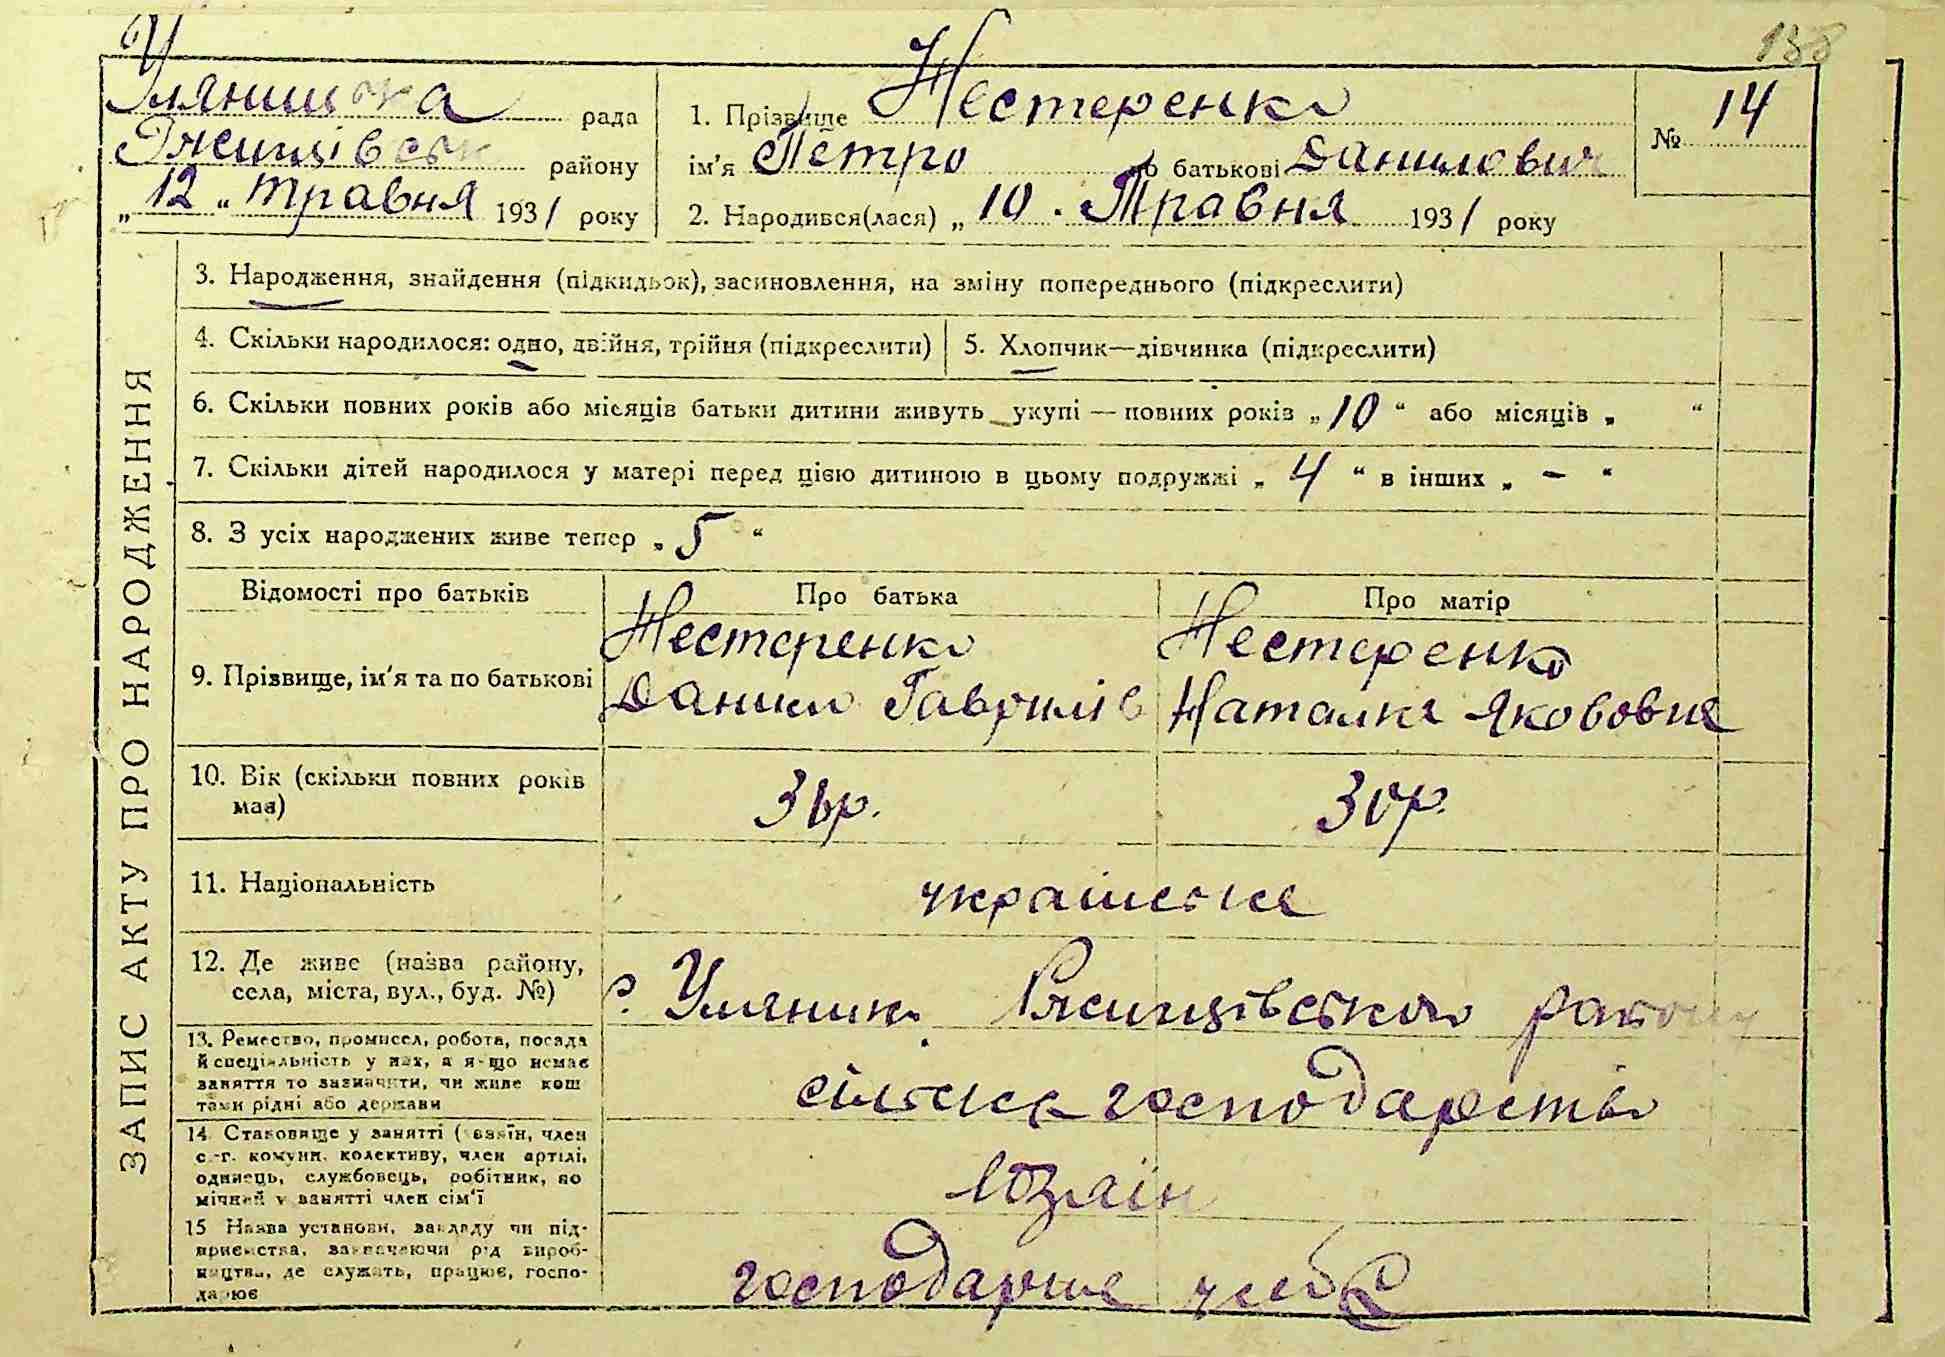 138
Уляницька рада
Ржищівськ району
„12“ травня 1931 року
1. Прізвище Нестеренко
ім'я Петро по батькові Данилович
2. Народився(лася) „10. Травня 1931 року
№ 14
ЗАПИС АКТУ ПРО НАРОДЖЕННЯ
3. Народження, знайдення (підкидьок), засиновлення, на зміну попереднього (підкреслити)
4. Скільки народилося: одно, двійня, трійня (підкреслити)
5. Хлопчик—дівчинка (підкреслити)
6. Скільки повних років або місяців батьки дитини живуть укупі — повних років „10“ або місяців „ “
7. Скільки дітей народилося у матері перед цією дитиною в цьому подружжі „4“ в інших „–“
8. З усіх народжених живе тепер „5“
Відомості про батьків
Про батька
Про матір
9. Прізвище, ім'я та по батькові
Нестеренко
Данило Гаврилів
Нестеренко
Наталка Якововна
10. Вік (скільки повних років
має)
р.
30р.
11. Національність
українська
12. Де живе (назва району,
села, міста, вул., буд. №)
с. Уляники Ржищівського району
13. Ремество, промисел, робота, посада
й спеціяльність у них, а якщо немає
заняття то зазначити, чи живе кош
тами рідні або держави
сільське господарство
14. Становище у занятті (хазяїн, член
с.-г. комуни, колективу, член артілі,
одинець, службовець, робітник, по
мічний у занятті член сім'ї
15 Назва установи, закладу чи під-
приємства, зазначаючи рід вироб-
ництва, де служить, працює, госпо-
дарює
господарює у себе